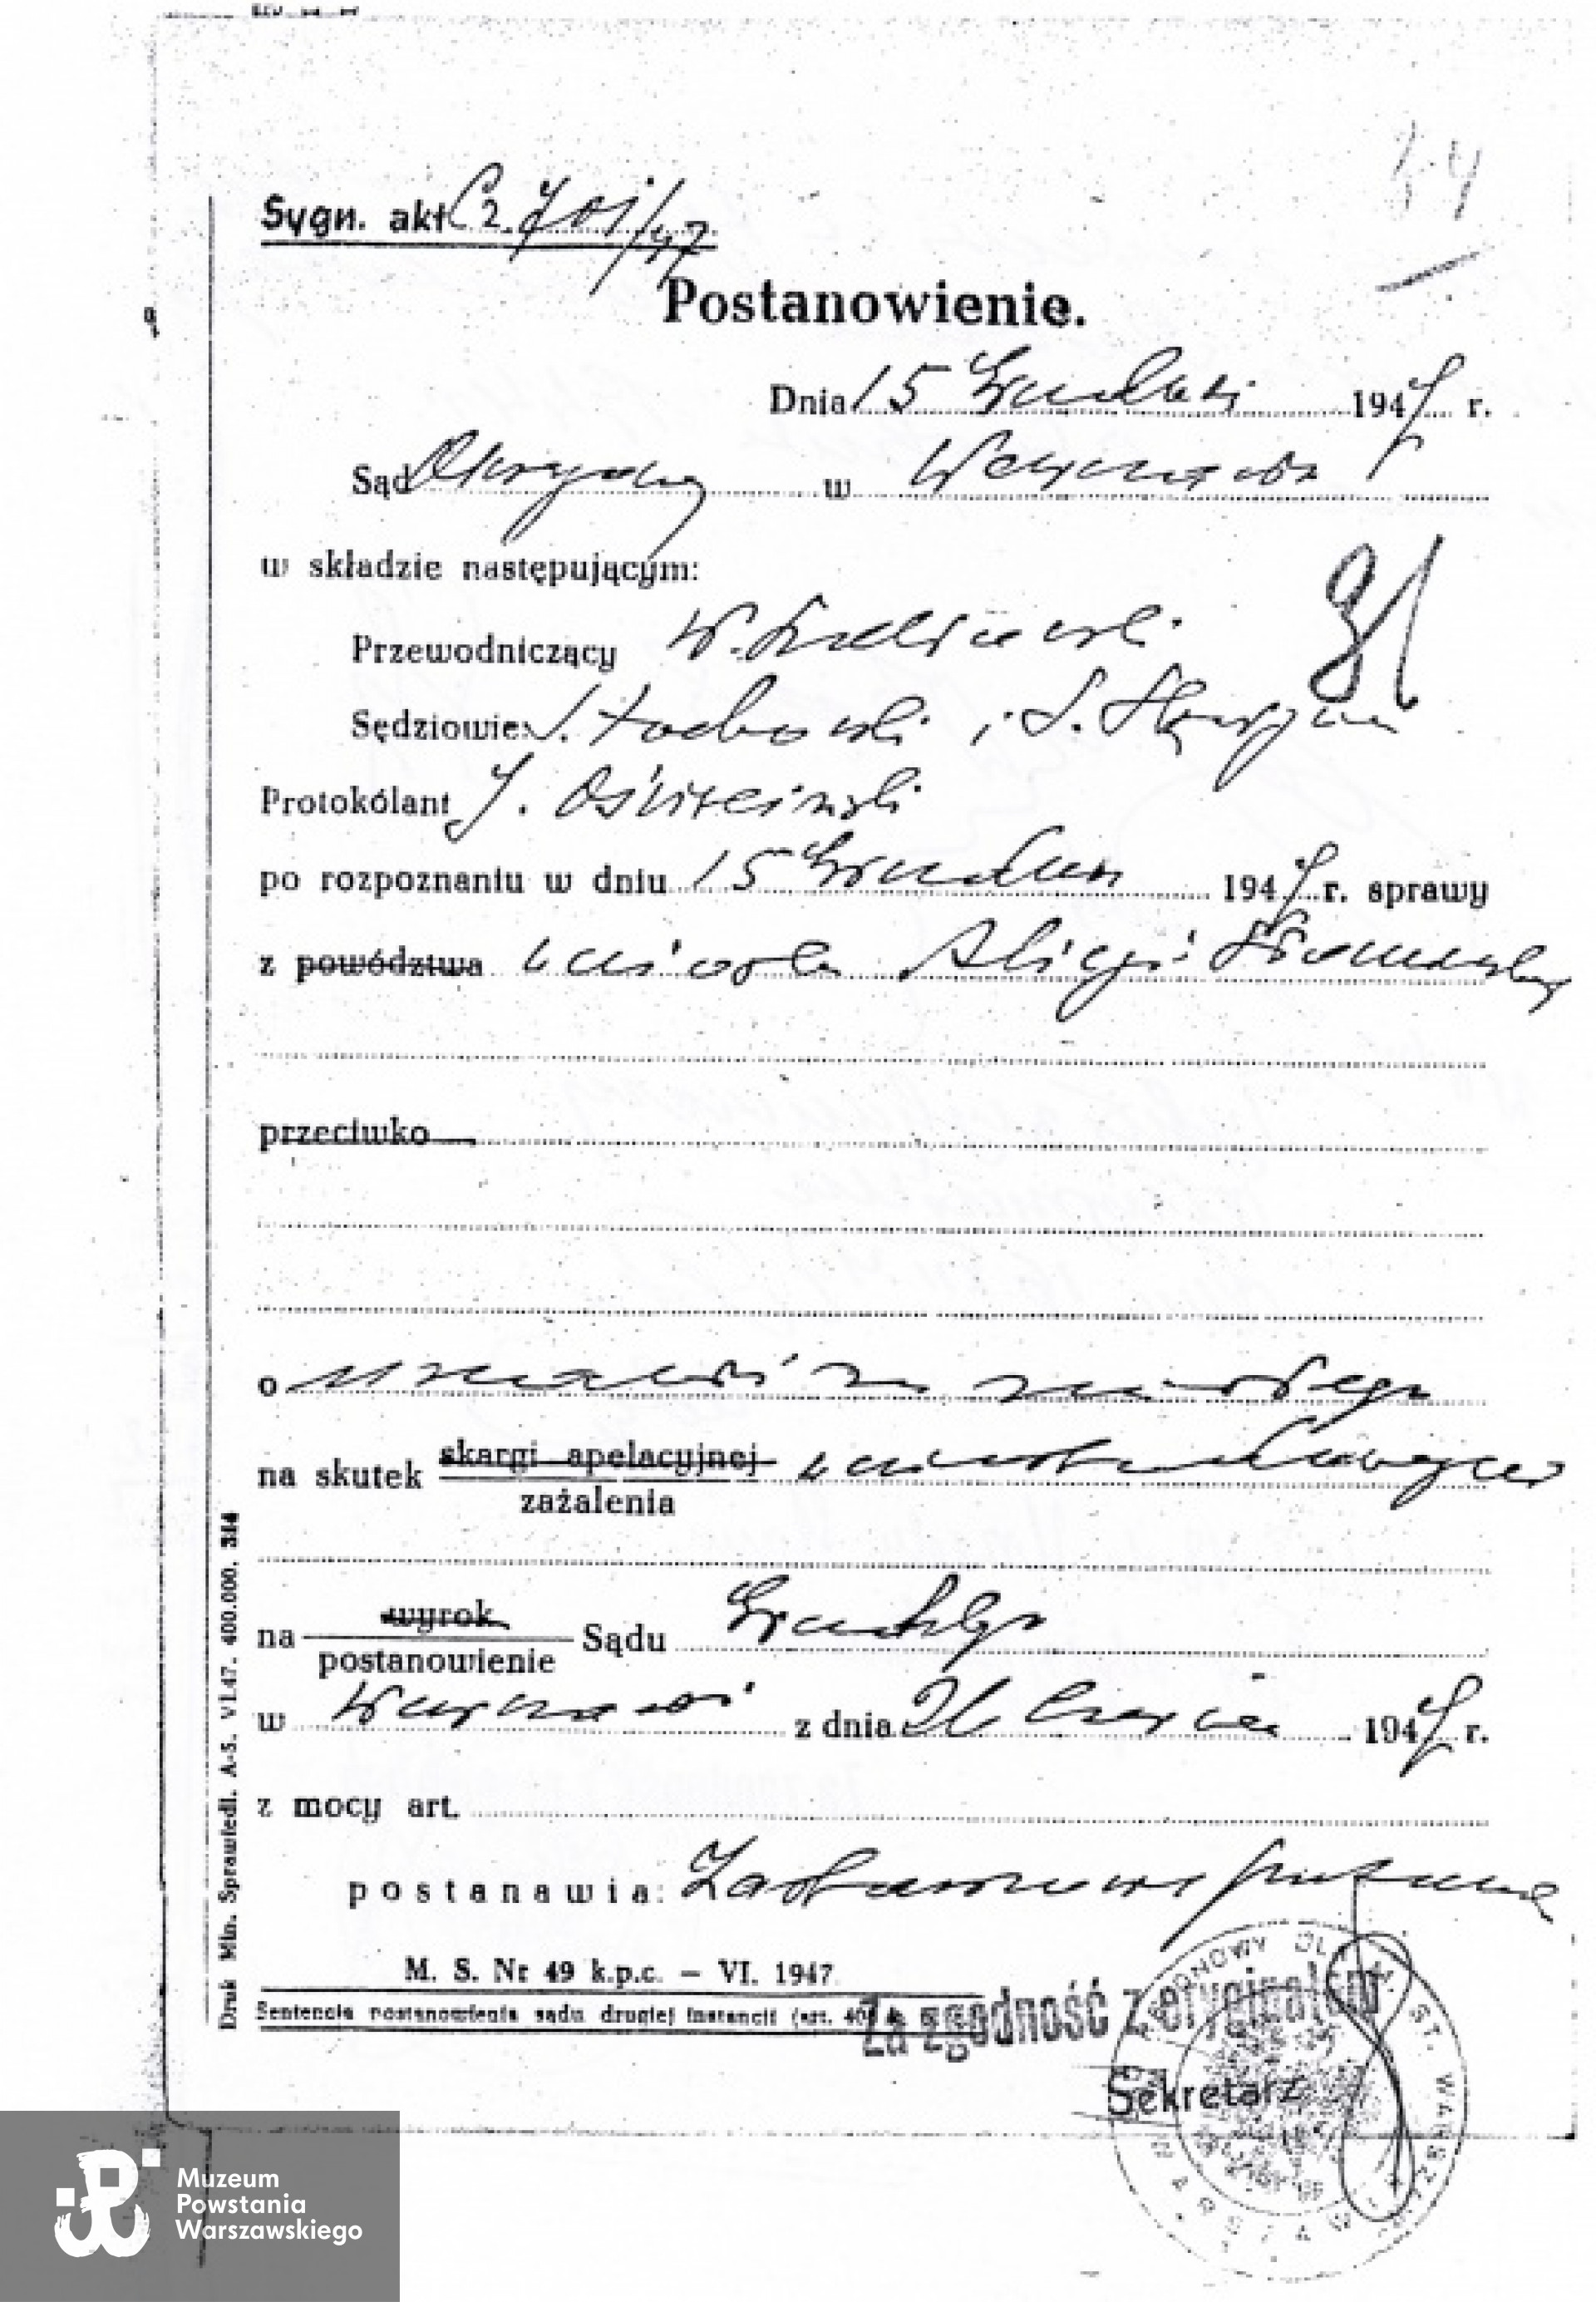 Sygn. akt C 2. 701/47
Postanowienie.
Dnia 15 Grudnia 1947 r.
Sąd Okręgowy w Warszawie
w składzie następującym:
Przewodniczący W.
Sędziowie: i S.
Protokólant J.
po rozpoznaniu w dniu 15 Grudnia 1947 r. sprawy
z powództwa wniosku Alicji
przeciwko
o uznanie za zmarłego
na skutek skargi apelacyjnej
zażalenia
wyrok
na Sądu Grodzkiego
postanowienie
w Warszawie z dnia 26 Czerwca 1947 r.
z mocy art.
postanawia: Zaskarżone
M. S. Nr 49 k.p.c. – VI. 1947
Sentencja postanowienia sądu drugiej instancji (art. 40
Za zgodność z oryginałem
Sekretarz
Druk Min. Sprawiedl. A-5. VI.47. 400.000. 314
Muzeum
Powstania
Warszawskiego